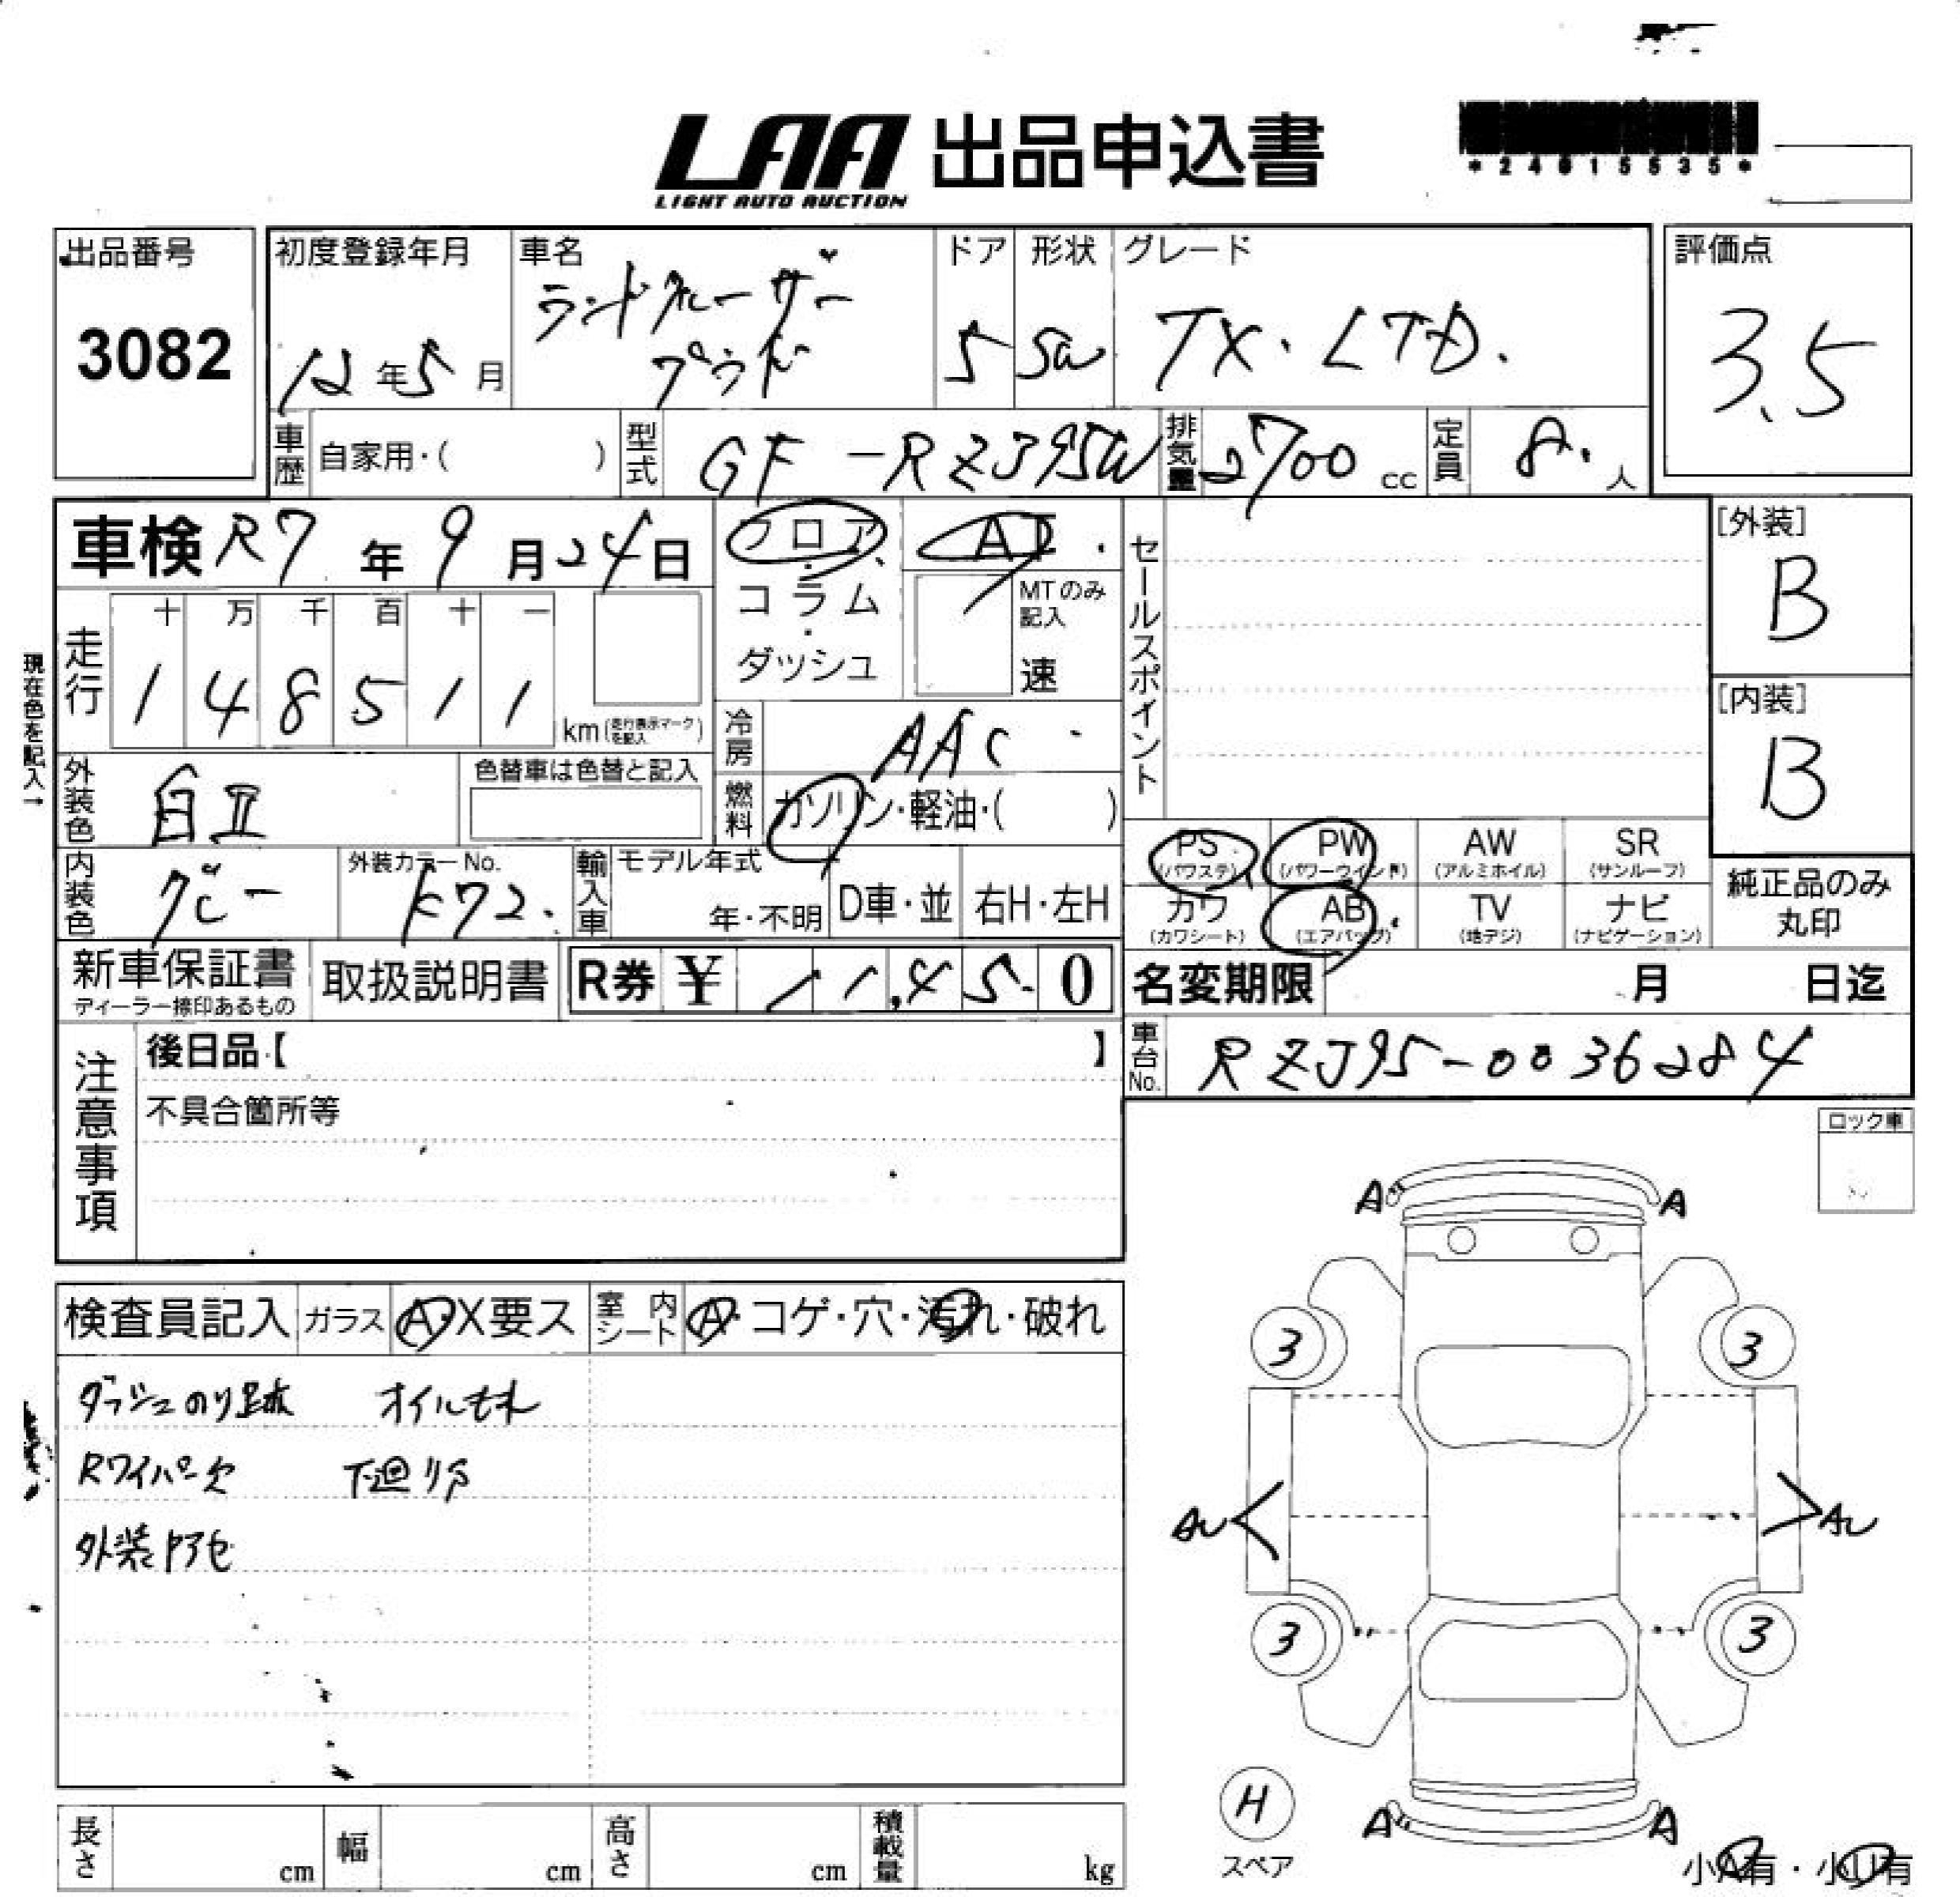 LAA 出品申込書
LIGHT AUTO AUCTION
出品番号
3082
初度登録年月
12年5月
車名
ランドクルーザー
プラド
ドア
5
形状
SW
グレード
TX・LTD.
評価点
3.5
車歴 自家用・( )
型式 GF-RZJ95W
排気量 2700 cc
定員 8. 人
車検 R7年9月24日
フロア・
コラム・
ダッシュ
AT
MTのみ
記入
速
セールスポイント
[外装]
B
[内装]
B
現在色を記入→
走行
十 万 千 百 十 一
1 4 8 5 1 1 km(走行表示マークを記入)
冷房 AAC
外装色 白II
色替車は色替と記入
燃料 ガソリン・軽油・( )
内装色 グレー
外装カラーNo.
K72.
輸入車
モデル年式
年・不明
D車・並
右H・左H
PS
(パワステ)
PW
(パワーウインド)
AW
(アルミホイル)
SR
(サンルーフ)
カワ
(カワシート)
AB
(エアバッグ)
TV
(地デジ)
ナビ
(ナビゲーション)
純正品のみ
丸印
新車保証書
ディーラー捺印あるもの
取扱説明書
R券 ¥ 11,450
名変期限 月 日迄
車台No. RZJ95-0036284
注意事項
後日品【 】
不具合箇所等
ロック車
検査員記入
ガラス A・X要ス
室内シート A・コゲ・穴・汚れ・破れ
ダッシュのり跡 オイルモレ
Rワイパー欠 下廻りS
外装アセ
A A
3 3
AU AU
3 3
H
スペア
A A
小A有・小U有
長さ cm
幅 cm
高さ cm
積載量 kg